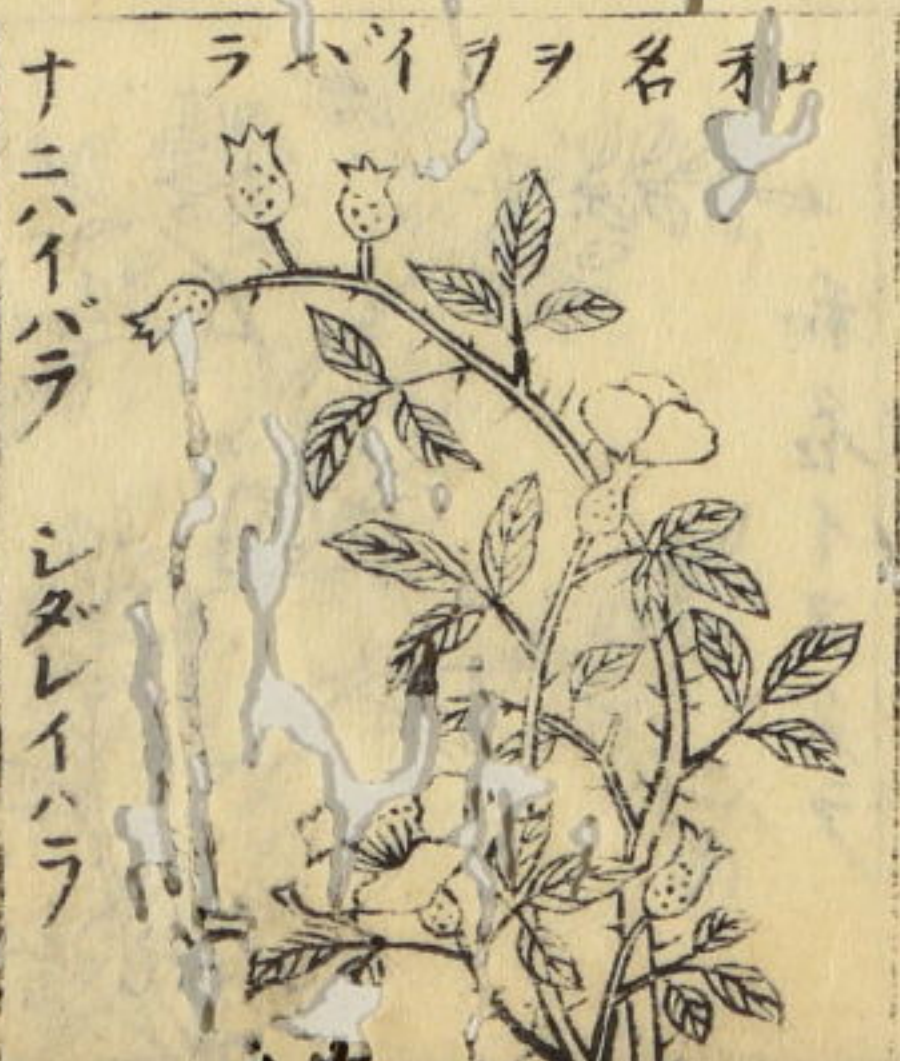 和名ヲヲイバラ
ナニハイバラ シダレイハラ